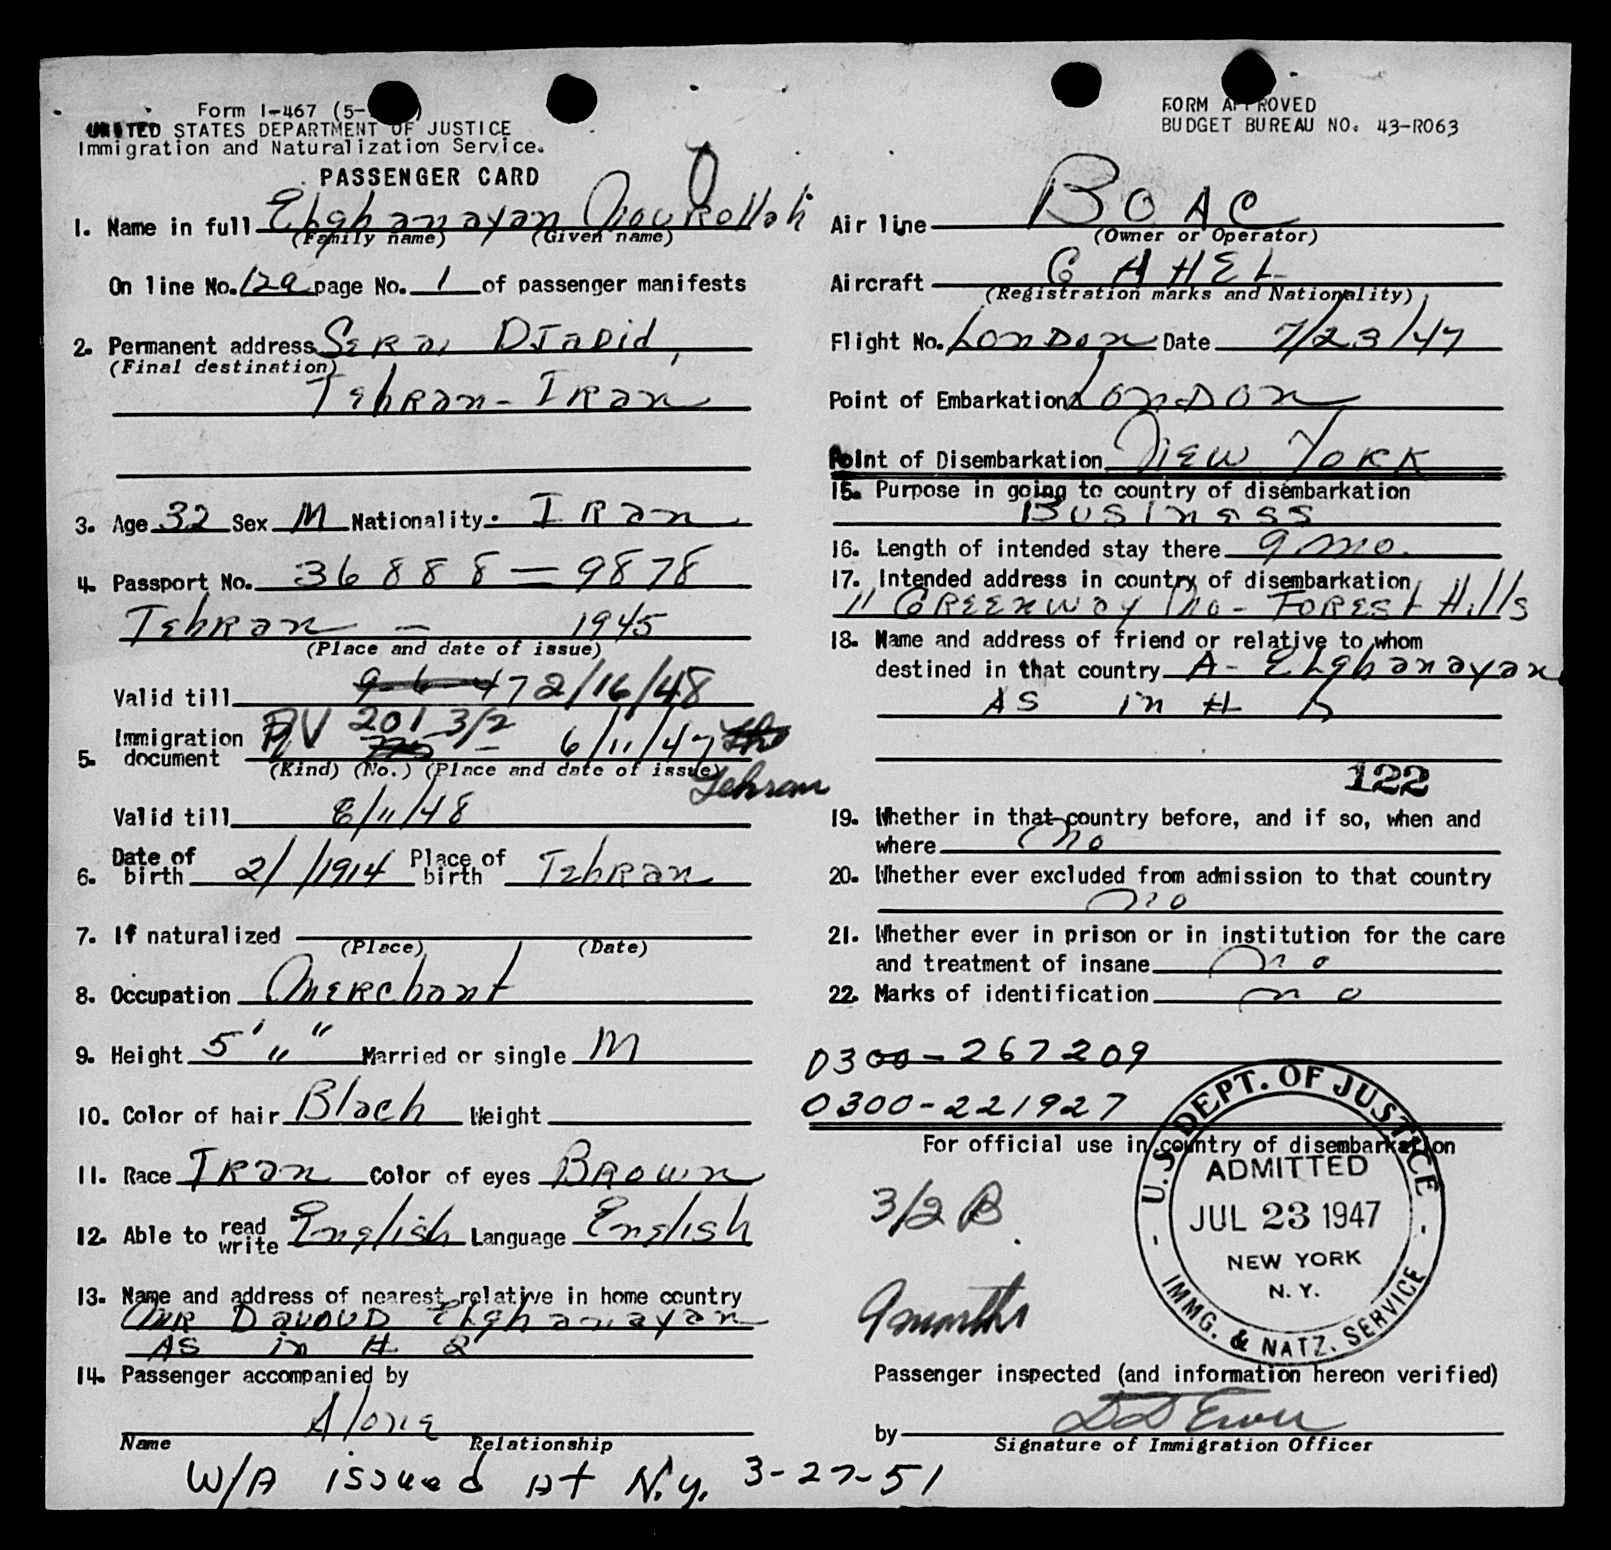 Form I-467 (5-
UNITED STATES DEPARTMENT OF JUSTICE
Immigration and Naturalization Service.
PASSENGER CARD
1. Name in full Elghanayan Nourollah
(Family name) (Given name)
On line No. 129 page No. 1 of passenger manifests
2. Permanent address Serai Djadid,
(Final destination)
Tehran - Iran
3. Age 32 Sex M Nationality. Iran
4. Passport No. 36888 - 9878
Tehran - 1945
(Place and date of issue)
Valid till 9-6-47 2/16/48
5. Immigration document PV 201 3/2 - 6/11/47
(Kind) (No.) (Place and date of issue)
Tehran
Valid till 6/11/48
6. Date of birth 2/ /1914 Place of birth Tehran
7. If naturalized
(Place) (Date)
8. Occupation Merchant
9. Height 5' " Married or single M
10. Color of hair Black Weight
11. Race Iran Color of eyes Brown
12. Able to read write English Language English
13. Name and address of nearest relative in home country
Mr Davoud Elghanayan
AS in # 2
14. Passenger accompanied by
Alone
Name Relationship
W/A issued at N.Y. 3-27-51
FORM APPROVED
BUDGET BUREAU NO. 43-R063
Air line BOAC
(Owner or Operator)
Aircraft G AHEL
(Registration marks and Nationality)
Flight No. London Date 7/23/47
Point of Embarkation London
Point of Disembarkation New York
15. Purpose in going to country of disembarkation
Business
16. Length of intended stay there 9 mo.
17. Intended address in country of disembarkation
11 Greenway No - Forest Hills
18. Name and address of friend or relative to whom
destined in that country A - Elghanayan
AS in #
122
19. Whether in that country before, and if so, when and
where no
20. Whether ever excluded from admission to that country
no
21. Whether ever in prison or in institution for the care
and treatment of insane no
22. Marks of identification no
0300-267209
0300-221927
For official use in country of disembarkation
3/2 B.
9 months
U.S. DEPT. OF JUSTICE
ADMITTED
JUL 23 1947
NEW YORK
N.Y.
IMMG. & NATZ. SERVICE
Passenger inspected (and information hereon verified)
by
Signature of Immigration Officer